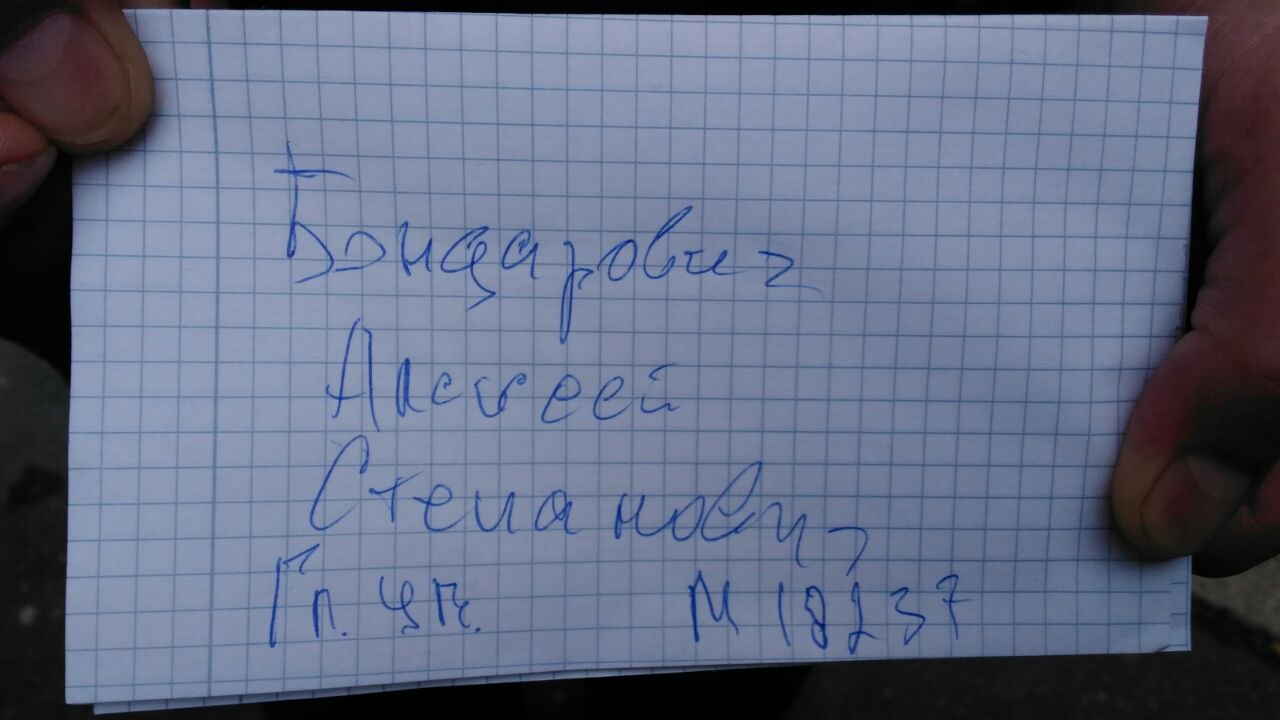 Бондарович
Алексей
Степанович
Гл. М 18237